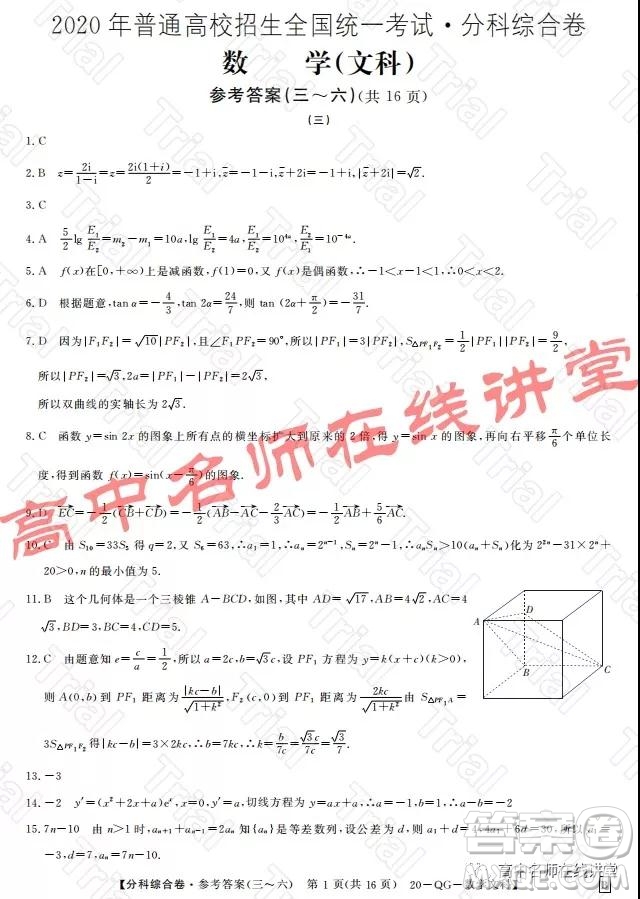 2020年普通高校招生全国统一考试·分科综合卷
数 学(文科)
参考答案(三～六)(共16页)
(三)
1. C
2. B z=2i/(1-i)=z=2i(1+i)/2=-1+i,z̄=-1-i,z̄+2i=-1+i,|z̄+2i|=√2.
3. C
4. A 5/2 lg E₁/E₂=m₂-m₁=10a,lg E₁/E₂=4a,E₁/E₂=10^{4a},E₂/E₁=10^{-4a}.
5. A f(x)在[0,+∞)上是减函数,f(1)=0,又f(x)是偶函数,∴-1<x-1<1,∴0<x<2.
6. D 根据题意,tan α=-4/3,tan 2α=24/7,则tan(2α+π/2)=-31/7.
7. D 因为|F₁F₂|=√10|PF₂|,且∠F₁PF₂=90°,所以|PF₁|=3|PF₂|,S△PF₁F₂=1/2|PF₁||PF₂|=9/2,
所以|PF₂|=√3,2a=|PF₁|-|PF₂|=2√3.
所以双曲线的实轴长为2√3.
8. C 函数y=sin 2x的图象上所有点的横坐标扩大到原来的2倍,得y=sin x的图象,再向右平移π/6个单位长
度,得到函数f(x)=sin(x-π/6)的图象.
9. D EC=-1/2(CB+CD)=-1/2(AB-AC-2/3AC)=-1/2AB+5/6AC.
10. C 由S₁₀=33S₅得q=2,又S₆=63,∴a₁=1,∴aₙ=2^{n-1},Sₙ=2ⁿ-1,∴aₙ(aₙ-10)>4(aₙ+Sₙ)化为2^{2n}-31×2ⁿ+
20>0,n的最小值为5.
11. B 这个几何体是一个三棱锥A-BCD,如图,其中AD=√17,AB=4√2,AC=4
√3,BD=3,BC=4,CD=5.
A
D
B
C
12. C 由题意知e=c/a=1/2,所以a=2c,b=√3c,设PF₁方程为y=k(x+c)(k>0),
则A(0,b)到PF₁距离为|kc-b|/√(1+k²),F₂(c,0)到PF₁距离为2kc/√(1+k²)由S△APF₁=
3S△PF₁F₂得|kc-b|=3×2kc,∴b=7kc,∴k=b/7c=√3c/7c=√3/7.
13. -3
14. -2 y′=(x²+2x+a)eˣ,y′(0)=a,切线方程为y=ax+a,∴a=-1,b=1,a-b=-2
15. 7n-10 由n>1时,aₙ₊₁+aₙ₋₁=2aₙ知{aₙ}是等差数列,设公差为d,则a₁+d=4,4a₁+6d=30,所以a₁=
-3,d=7,aₙ=7n-10.
【分科综合卷·参考答案(三～六) 第1页(共16页) 20-QG-数学(文科)】
高中名师在线讲堂
高中名师在线讲堂
答案圈
Trial